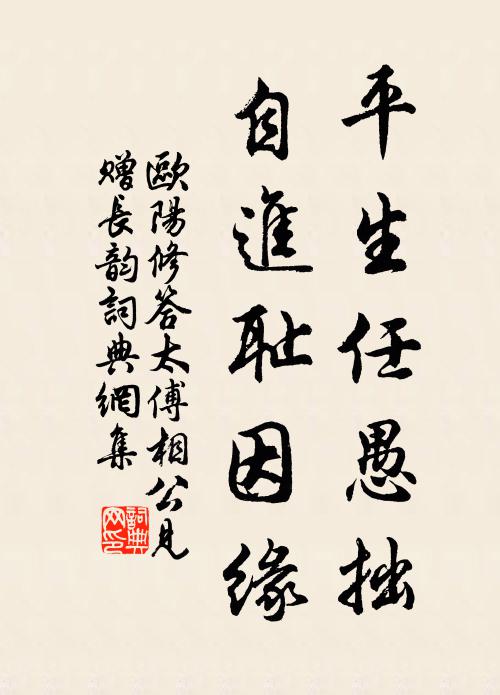 平生任愚拙
自進耻因緣
歐陽修答太傅相公見
贈長韵詞典網集
詞典網印